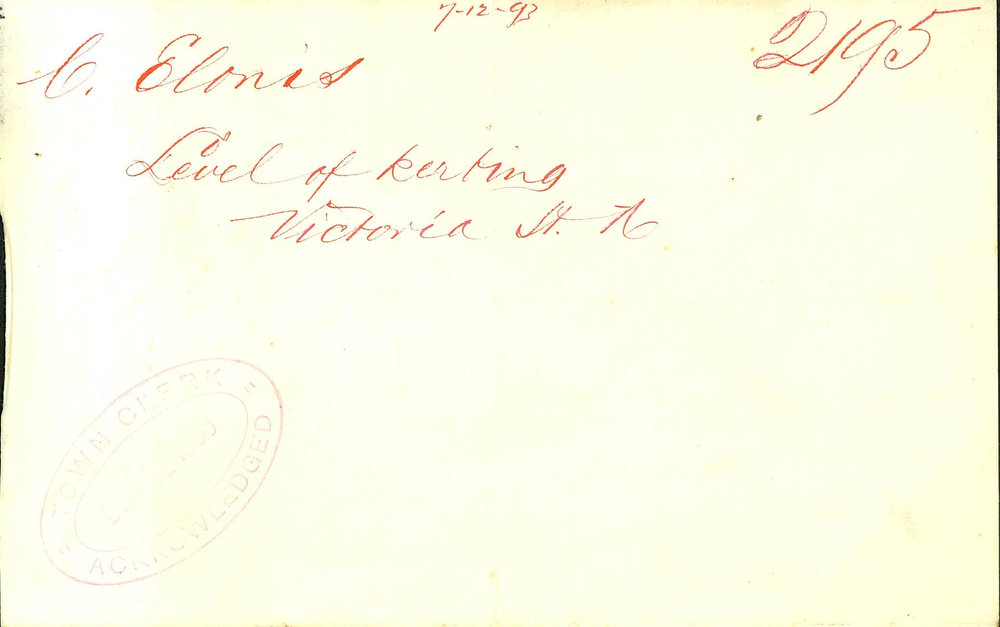 7-12-93
2195
C. Elonis
Level of kerbing
Victoria St. N
TOWN CLERK
ACKNOWLEDGED